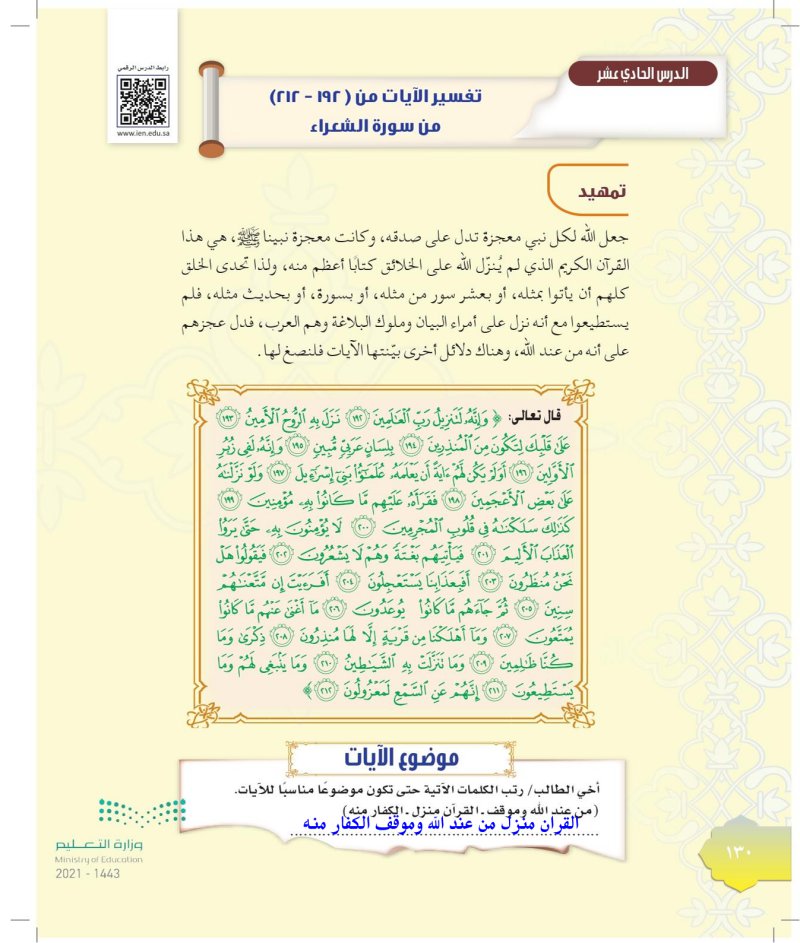 رابط الدرس الرقمي
www.ien.edu.sa
الدرس الحادي عشر
تفسير الآيات من (١٩٢ - ٢١٢)
من سورة الشعراء
تمهيد
جعل الله لكل نبي معجزة تدل على صدقه، وكانت معجزة نبينا ﷺ، هي هذا
القرآن الكريم الذي لم يُنزّل الله على الخلائق كتابًا أعظم منه، ولذا تحدى الخلق
كلهم أن يأتوا بمثله، أو بعشر سور من مثله، أو بسورة، أو بحديث مثله، فلم
يستطيعوا مع أنه نزل على أمراء البيان وملوك البلاغة وهم العرب، فدل عجزهم
على أنه من عند الله، وهناك دلائل أخرى بيّنتها الآيات فلنصغ لها.
قال تعالى: ﴿ وَإِنَّهُۥ لَتَنزِيلُ رَبِّ ٱلْعَٰلَمِينَ ١٩٢ نَزَلَ بِهِ ٱلرُّوحُ ٱلْأَمِينُ ١٩٣
عَلَىٰ قَلْبِكَ لِتَكُونَ مِنَ ٱلْمُنذِرِينَ ١٩٤ بِلِسَانٍ عَرَبِيٍّ مُّبِينٍ ١٩٥ وَإِنَّهُۥ لَفِى زُبُرِ
ٱلْأَوَّلِينَ ١٩٦ أَوَلَمْ يَكُن لَّهُمْ ءَايَةً أَن يَعْلَمَهُۥ عُلَمَٰٓؤُا۟ بَنِىٓ إِسْرَٰٓءِيلَ ١٩٧ وَلَوْ نَزَّلْنَٰهُ
عَلَىٰ بَعْضِ ٱلْأَعْجَمِينَ ١٩٨ فَقَرَأَهُۥ عَلَيْهِم مَّا كَانُوا۟ بِهِۦ مُؤْمِنِينَ ١٩٩
كَذَٰلِكَ سَلَكْنَٰهُ فِى قُلُوبِ ٱلْمُجْرِمِينَ ٢٠٠ لَا يُؤْمِنُونَ بِهِۦ حَتَّىٰ يَرَوُا۟
ٱلْعَذَابَ ٱلْأَلِيمَ ٢٠١ فَيَأْتِيَهُم بَغْتَةً وَهُمْ لَا يَشْعُرُونَ ٢٠٢ فَيَقُولُوا۟ هَلْ
نَحْنُ مُنظَرُونَ ٢٠٣ أَفَبِعَذَابِنَا يَسْتَعْجِلُونَ ٢٠٤ أَفَرَءَيْتَ إِن مَّتَّعْنَٰهُمْ
سِنِينَ ٢٠٥ ثُمَّ جَآءَهُم مَّا كَانُوا۟ يُوعَدُونَ ٢٠٦ مَآ أَغْنَىٰ عَنْهُم مَّا كَانُوا۟
يُمَتَّعُونَ ٢٠٧ وَمَآ أَهْلَكْنَا مِن قَرْيَةٍ إِلَّا لَهَا مُنذِرُونَ ٢٠٨ ذِكْرَىٰ وَمَا
كُنَّا ظَٰلِمِينَ ٢٠٩ وَمَا تَنَزَّلَتْ بِهِ ٱلشَّيَٰطِينُ ٢١٠ وَمَا يَنۢبَغِى لَهُمْ وَمَا
يَسْتَطِيعُونَ ٢١١ إِنَّهُمْ عَنِ ٱلسَّمْعِ لَمَعْزُولُونَ ٢١٢ ﴾
موضوع الآيات
أخي الطالب/ رتب الكلمات الآتية حتى تكون موضوعًا مناسبًا للآيات.
(من عند الله وموقف ـ القرآن منزل ـ الكفار منه)
القرآن منزل من عند الله وموقف الكفار منه
وزارة التعليم
Ministry of Education
2021 - 1443
١٣٠